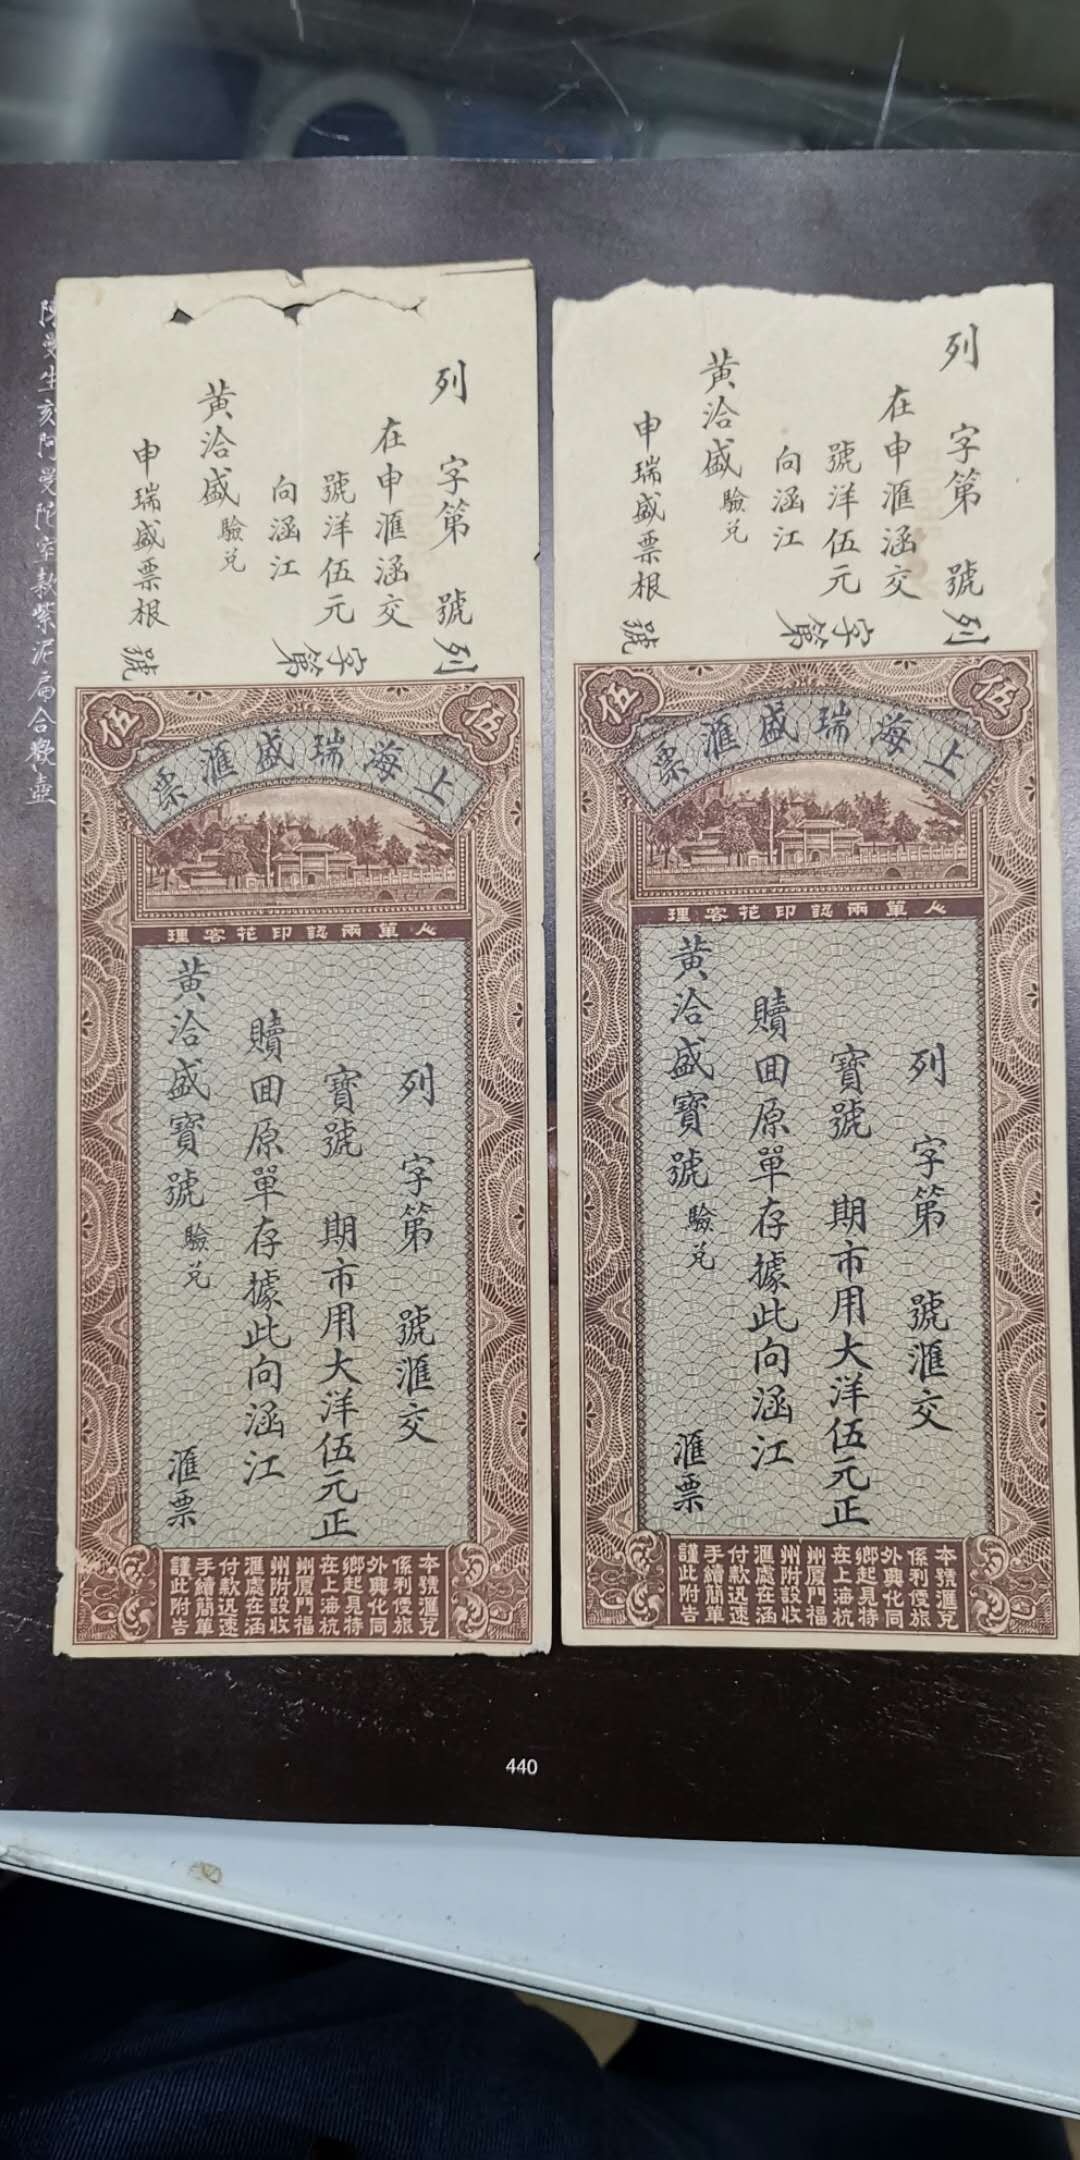 陳曼生亥阿曼陀室款紫泥扁合歡壺
列 字第 號
在申滙涵交
號洋伍元
向涵江
黃洽盛驗兑
申瑞盛票根
列 字第 號
伍 伍
上海瑞盛滙票
人單兩認印花客理
列 字第 號滙交
寶號 期市用大洋伍元正
贖回原單存據此向涵江
黃洽盛寶號驗兑 滙票
本號滙兑
係利便旅
外興化同
鄉起見特
在上海杭
州厦門福
州附設收
滙處在涵
付款迅速
手續簡單
謹此附告
列 字第 號
在申滙涵交
號洋伍元
向涵江
黃洽盛驗兑
申瑞盛票根
列 字第 號
伍 伍
上海瑞盛滙票
人單兩認印花客理
列 字第 號滙交
寶號 期市用大洋伍元正
贖回原單存據此向涵江
黃洽盛寶號驗兑 滙票
本號滙兑
係利便旅
外興化同
鄉起見特
在上海杭
州厦門福
州附設收
滙處在涵
付款迅速
手續簡單
謹此附告
440